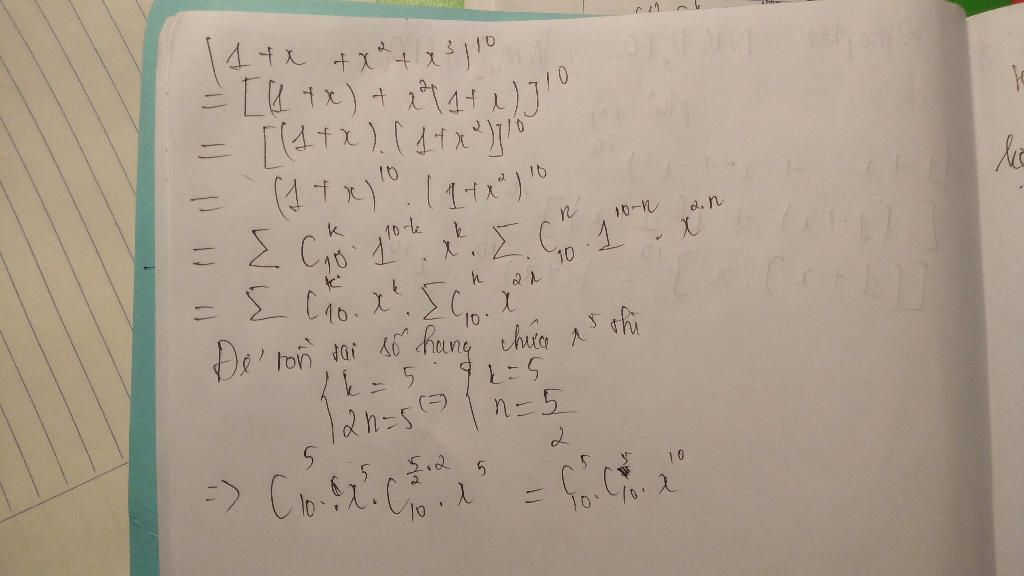 (1 + x + x² + x³)¹⁰
= [(1 + x) + x²(1 + x)]¹⁰
= [(1 + x).(1 + x²)]¹⁰
= (1 + x)¹⁰ . (1 + x²)¹⁰
= ∑ C₁₀ᵏ . 1¹⁰⁻ᵏ . xᵏ . ∑ C₁₀ⁿ . 1¹⁰⁻ⁿ . x²·ⁿ
= ∑ C₁₀ᵏ . xᵏ . ∑ C₁₀ⁿ . x²ⁿ
Để tồn tại số hạng chứa x⁵ thì
{ k = 5 ; 2n = 5 (=) { k = 5 ; n = 5/2
=> C₁₀⁵ . x⁵ . C₁₀^(5/2 . 2) . x⁵ = C₁₀⁵ . C₁₀⁵ . x¹⁰